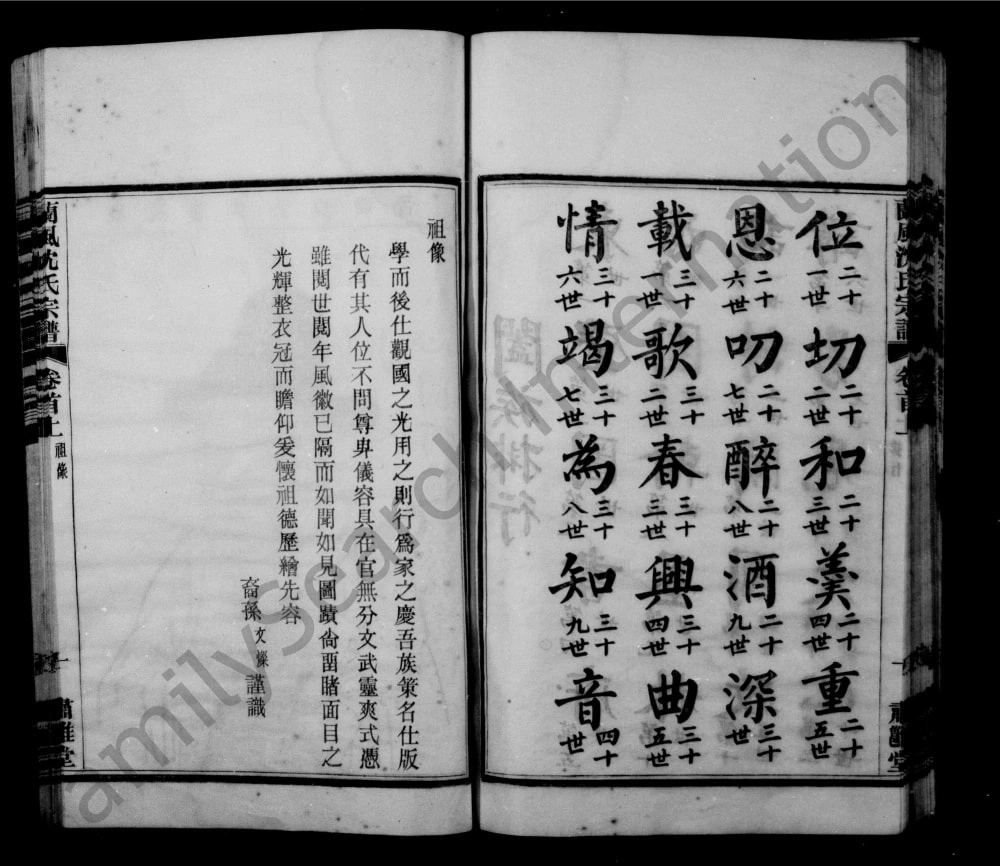 位二十一世切二十二世和二十三世羹二十四世重二十五世
恩二十六世叨二十七世醉二十八世酒二十九世深三十世
載三十一世歌三十二世春三十三世興三十四世曲三十五世
情三十六世竭三十七世為三十八世知三十九世音四十世
祖像
學而後仕觀國之光用之則行爲家之慶吾族策名仕版
代有其人位不問尊卑儀容具在官無分文武靈爽式憑
雖閱世閱年風徽已隔而如聞如見圖蹟尙留睹面目之
光輝整衣冠而瞻仰爰懷祖德歷繪先容
裔孫文 謹識
蘭風沈氏宗譜 卷首上 祖像 一 肅雝堂
蘭風沈氏宗譜 卷首 一 肅雝堂
闔族排行
FamilySearch International